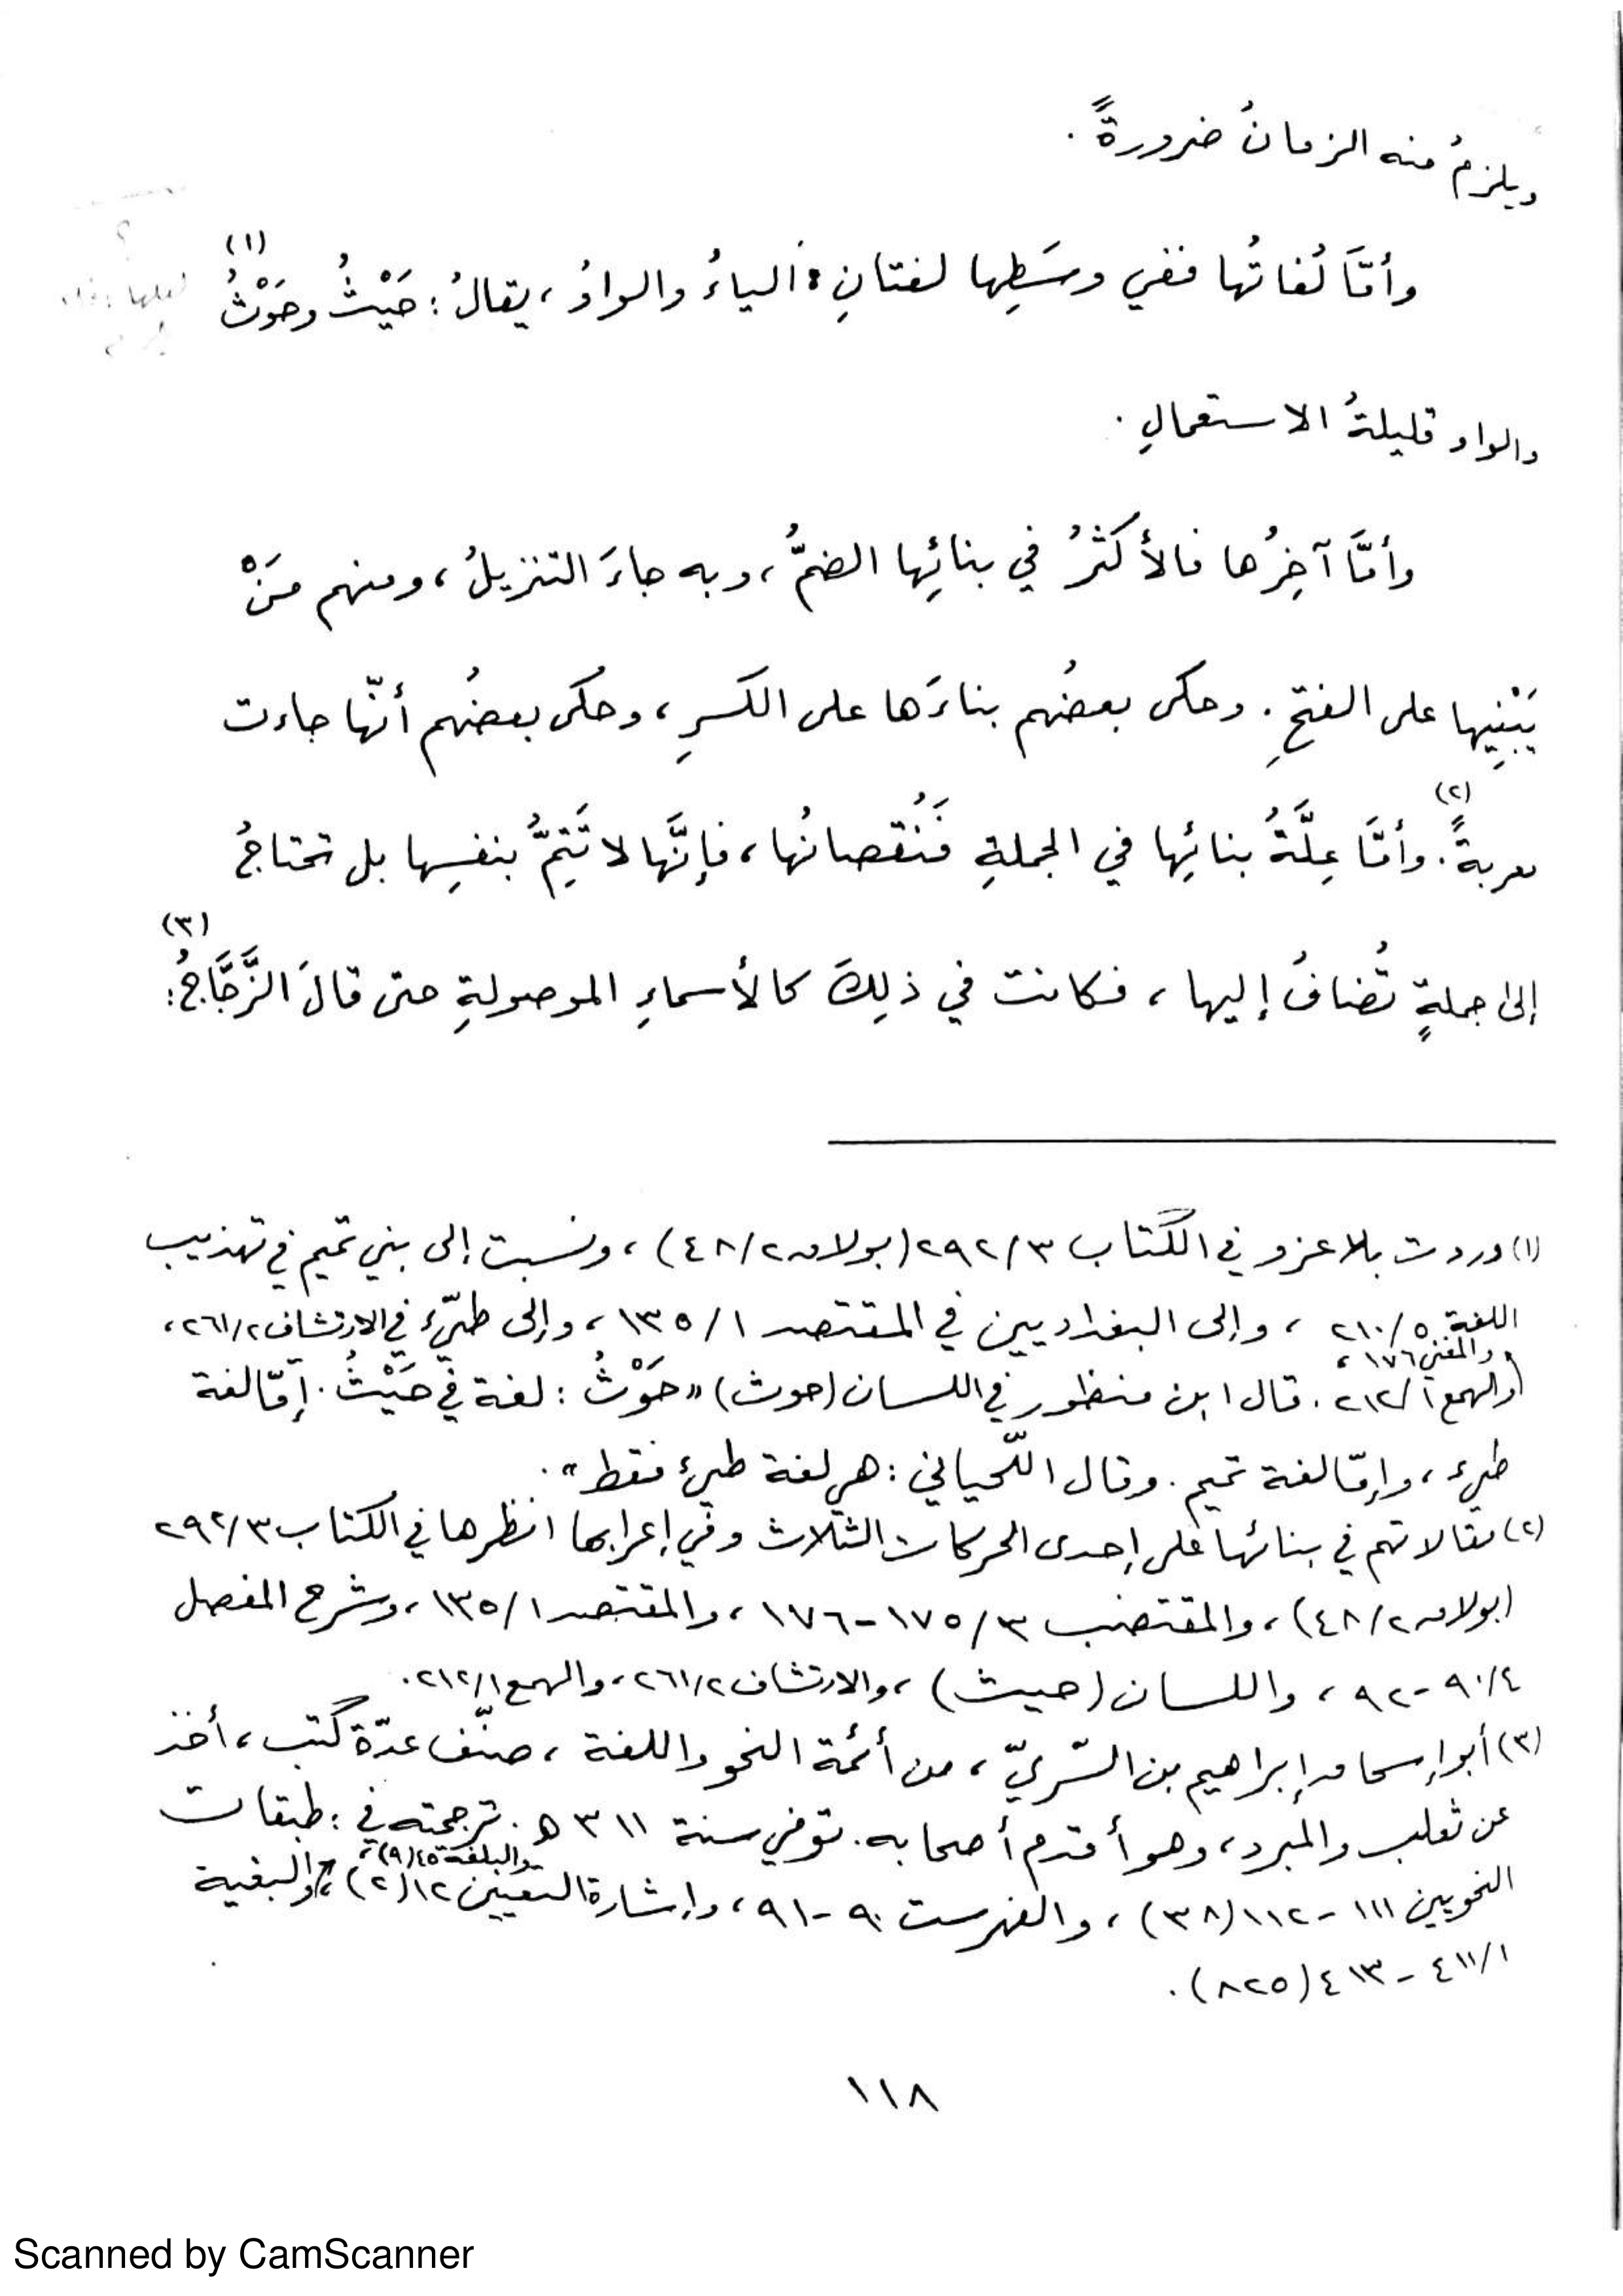 ويلزمُ منه الزمانُ ضرورةً .
وأمَّا لُغاتُها ففي وسَطِها لغتانِ : الياءُ والواوُ ، يقالُ : حَيْثُ وحَوْثُ (١)
والواو قليلةُ الاستعمالِ .
وأمَّا آخِرُها فالأكثرُ في بنائِها الضمُّ ، وبه جاءَ التنزيلُ ، ومنهم مَنْ
يَبْنِيها على الفتحِ . وحكى بعضُهم بناءَها على الكسرِ ، وحكى بعضُهم أنّها جاءت
معربةً (٢) . وأمَّا عِلَّةُ بنائِها في الجملةِ فَنُقصانُها ، فإنَّها لا تَتِمُّ بنفسِها بل تحتاجُ
إلى جملةٍ تُضافُ إليها ، فكانت في ذلِكَ كالأسماءِ الموصولةِ حتى قالَ الزَّجَّاجُ (٣) :
(١) وردت بلا عزو في الكتاب ٢٩٢/٣ (بولاق ٤٨/٢) ، ونسبت إلى بني تميم في تهذيب
اللغة ٢١٠/٥ ، وإلى البغداديين في المقتصد ١٣٥/١ ، وإلى طيّء في الارتشاف ٢٦١/٢ ،
والمغني ١٧٦ ،
والهمع ٢١٢/١ . قال ابن منظور في اللسان (حوث) « حَوْثُ : لغة في حَيْثُ . إمّا لغة
طيء ، وإمّا لغة تميم . وقال اللّحياني : هي لغة طيء فقط » .
(٢) مقالاتهم في بنائها على إحدى الحركات الثلاث وفي إعرابها انظرها في الكتاب ٢٩٢/٣
(بولاق ٤٨/٢) ، والمقتضب ١٧٥/٣-١٧٦ ، والمقتصد ١٣٥/١ ، وشرح المفصل
٩٠/٤-٩٢ ، واللسان (حيث) ، والارتشاف ٢٦١/٢ ، والهمع ٢١٢/١ .
(٣) أبو إسحاق إبراهيم بن السّريّ ، من أئمة النحو واللغة ، صنّف عدّة كتب ، أخذ
عن ثعلب والمبرد ، وهو أقدم أصحابه . توفي سنة ٣١١ ه . ترجمته في : طبقات
النحويين ١١١-١١٢ (٣٨) ، والفهرست ٩٠-٩١ ، وإشارة التعيين ١٢ (٢) ، والبلغة ٤٥ (٩) ، والبغية
٤١١/١-٤١٣ (٨٢٥) .
١١٨
Scanned by CamScanner